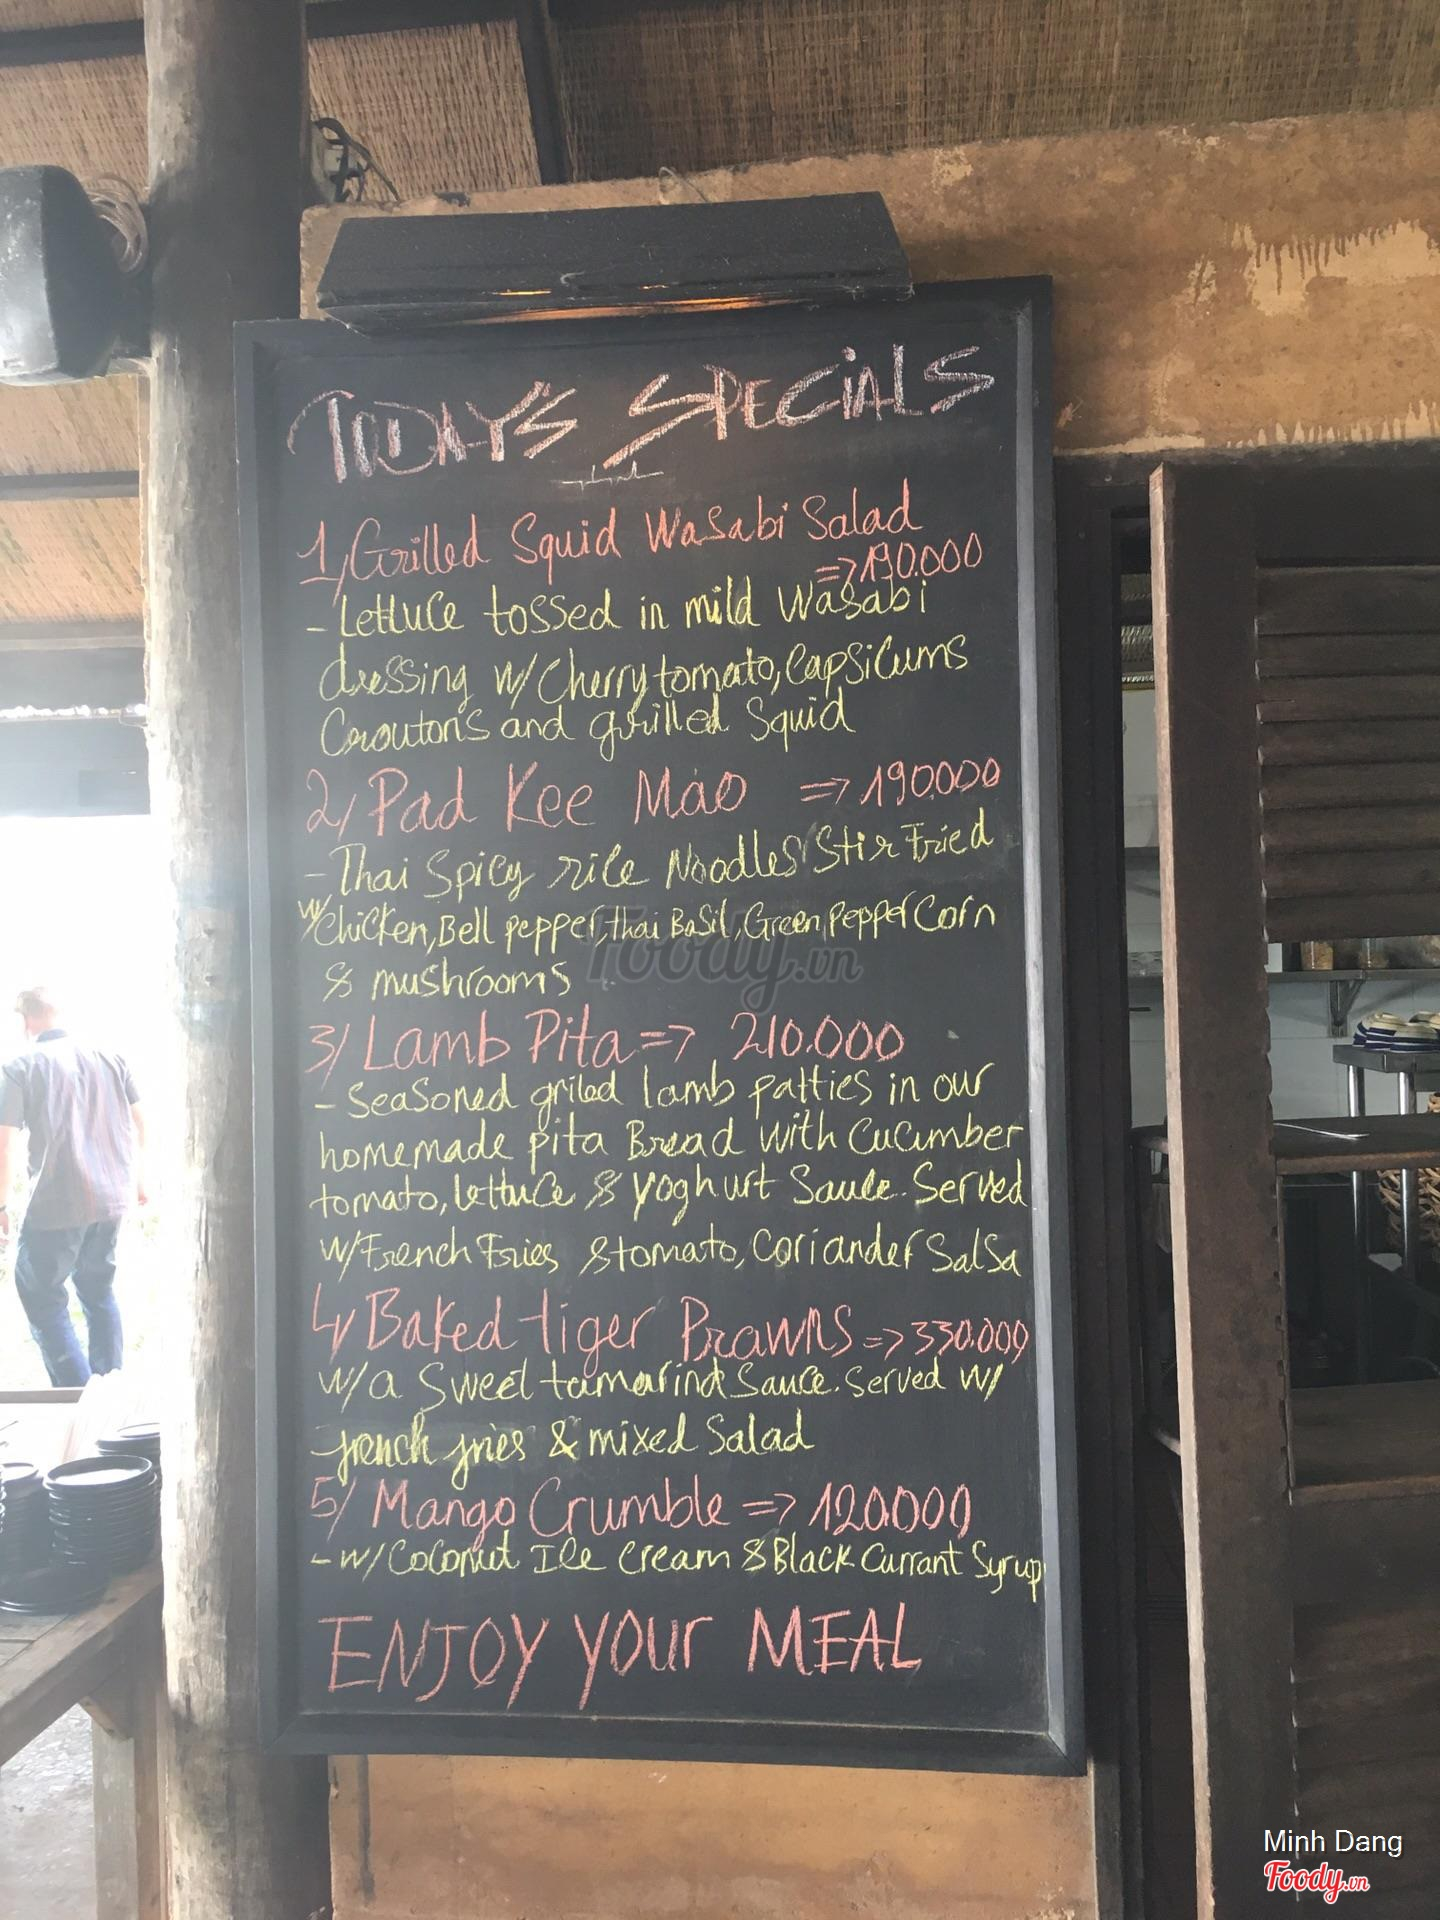 TODAY'S SPECIALS
1/ Grilled Squid Wasabi Salad
=> 190.000
- Lettuce tossed in mild Wasabi
dressing w/ Cherry tomato, Capsicums
Croutons and grilled Squid
2/ Pad Kee Mao => 190.000
- Thai Spicy rice Noodles Stir Fried
w/ chicken, Bell pepper, thai Basil, Green pepper Corn
& mushrooms
3/ Lamb Pita => 210.000
- Seasoned griled lamb patties in our
homemade pita Bread with Cucumber
tomato, lettuce & yoghurt Sauce. Served
w/ French Fries & tomato, Coriander Salsa
4/ Baked tiger Prawns => 330.000
w/ a Sweet tamarind Sauce. Served w/
french fries & mixed Salad
5/ Mango Crumble => 120.000
- w/ Coconut Ice Cream & Black Currant Syrup
ENJOY YOUR MEAL
Foody.vn
Minh Dang
Foody.vn